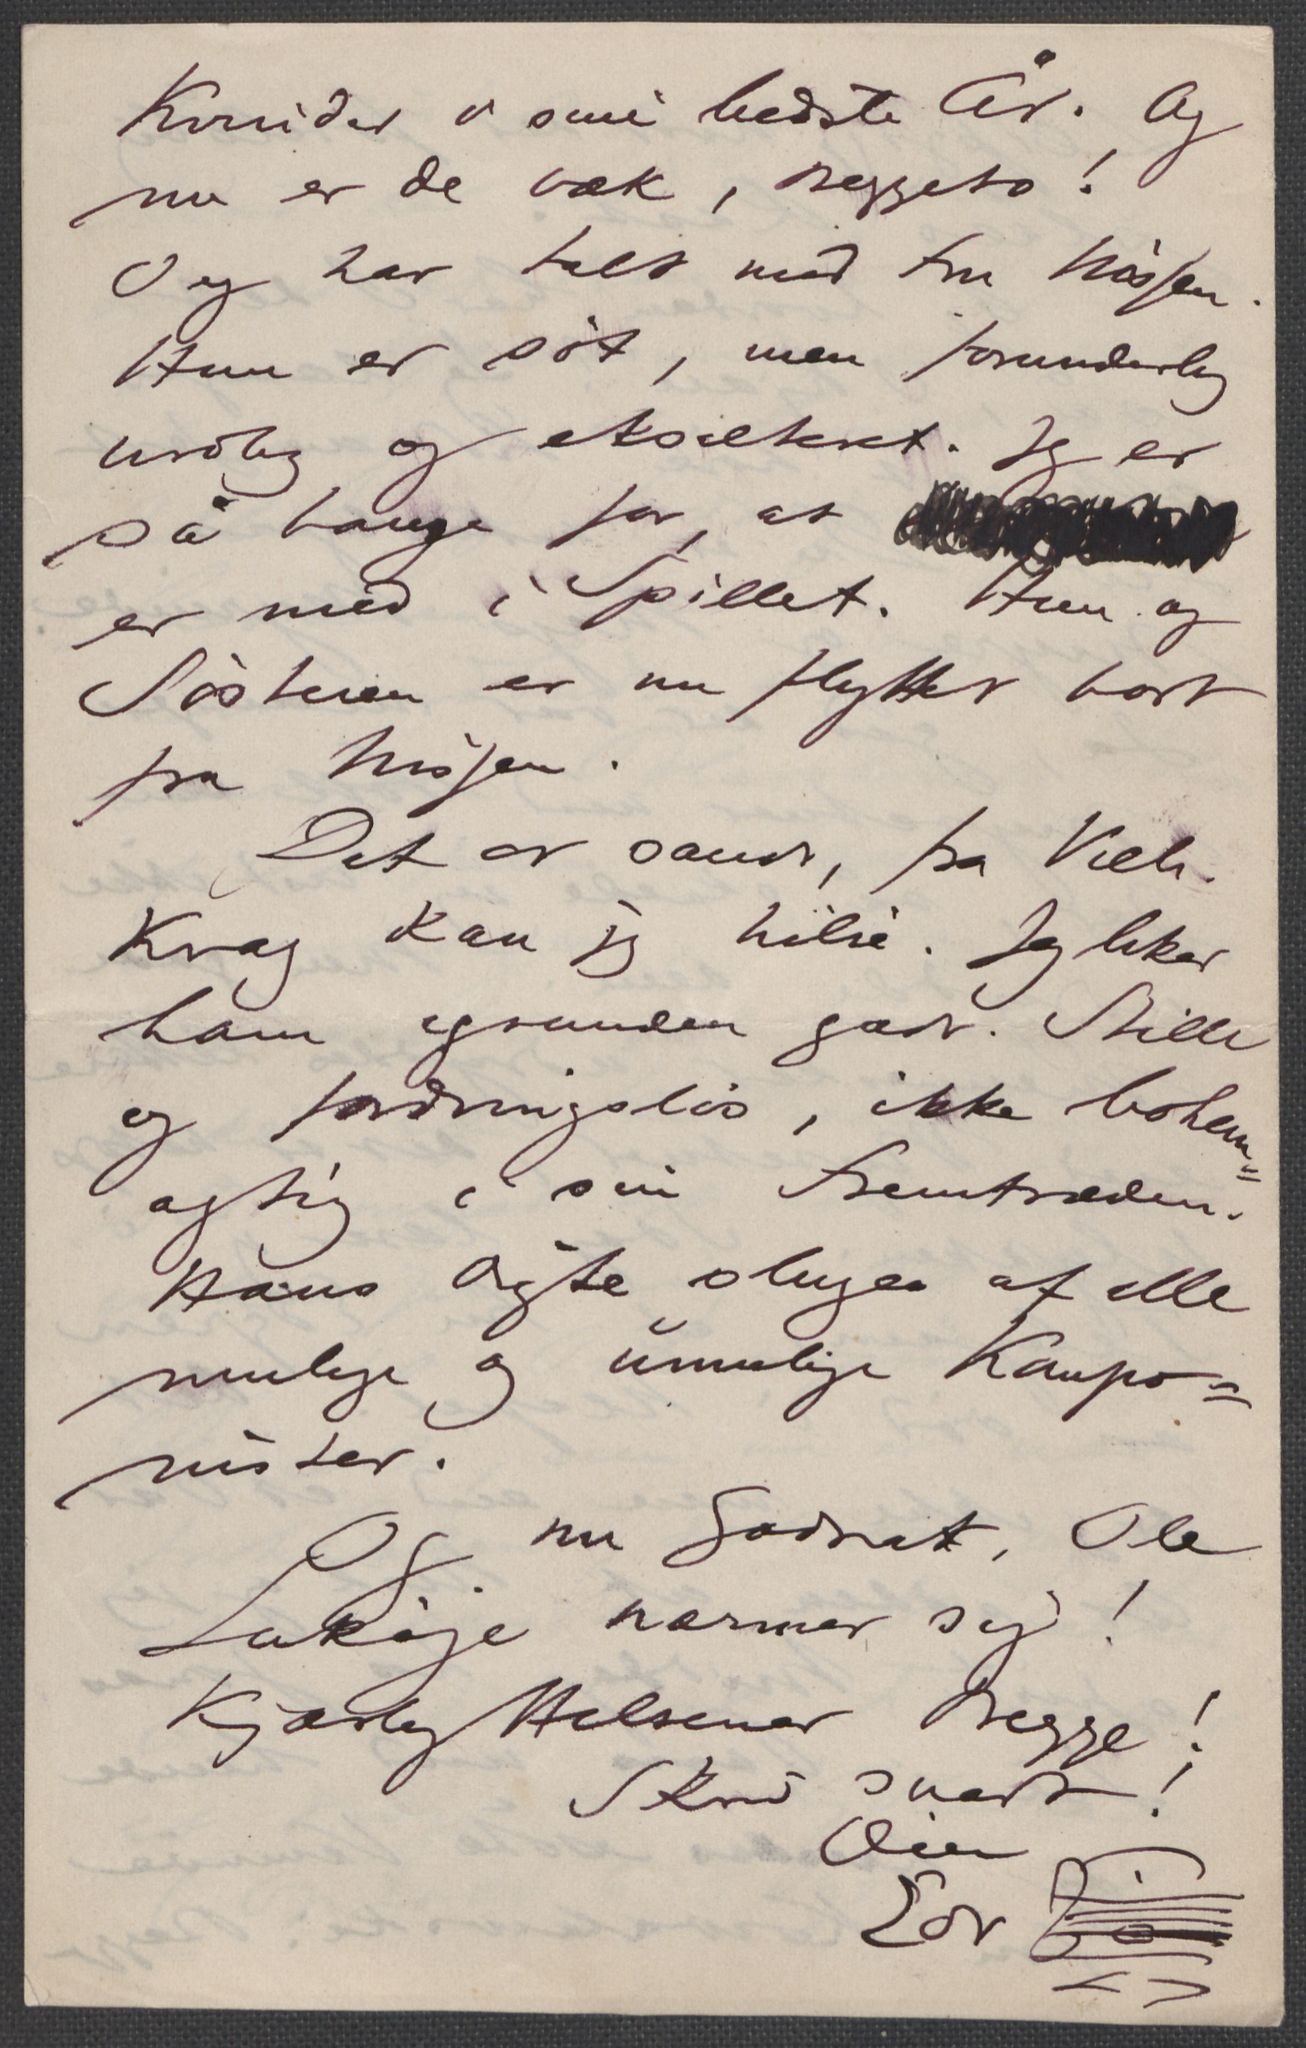 Kvinder i sine bedste År. Og
nu er de væk, begge to!
Jeg har talt med Fru Nissen.
Hun er söt, men forunderlig
urolig og eksalteret. Jeg er
så bange for, at
er med i Spillet. Hun og
Sösteren er nu flyttet bort
fra Nissen.
Det er sandt, fra Vilh.
Krag kan jeg hilse. Jeg liker
ham igrunden godt. Stille
og fordringslös, ikke bohem=
agtig i sin Fremtræden.
Hans Digte sluges af alle
mulige og umulige Kompo=
nister.
Og nu Godnat, Ole
Luköje nærmer sig!
Kjærlig Hilsener Begge!
Skriv snart!
Din
Edv